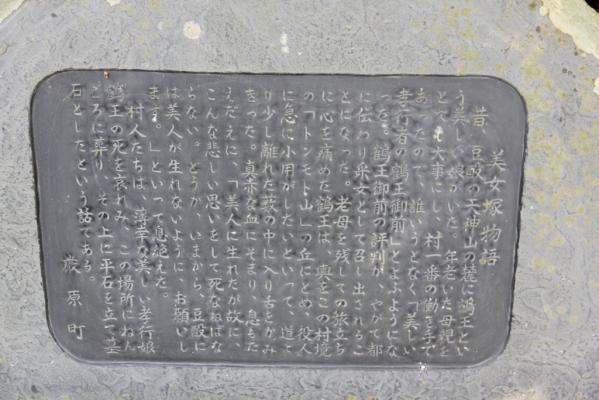 美女塚物語
昔、豆酘の天神山の麓に鶴王とい
う美しい娘がいた。年老いた母親を
とても大事にし、村一番の働き手で
あったので、誰いうとなく「美しい
孝行者の鶴王御前」とよぶようにな
った。鶴王御前の評判が、やがて都
に伝わり采女として召し出されるこ
とになった。老母を残しての旅立ち
に心を痛めた鶴王は、輿をこの村境
の「トンモト山」の丘にとめ、役人
に急に小用がしたいといって、道よ
り少し離れた薮の中に入り舌をかみ
きった。真赤な血にそまり、息もた
えだえに、「美人に生れたが故に、
こんな悲しい思いをして死なねばな
らない。どうか、いまから、豆酘に
は美人が生れないように お願いし
ます。」といって息絶えた。
村人たちは、薄幸な美しい孝行娘
鶴王の死を哀れみ この場所にねん
ごろに葬り、その上に平石を立て墓
石としたという話である。
厳原町